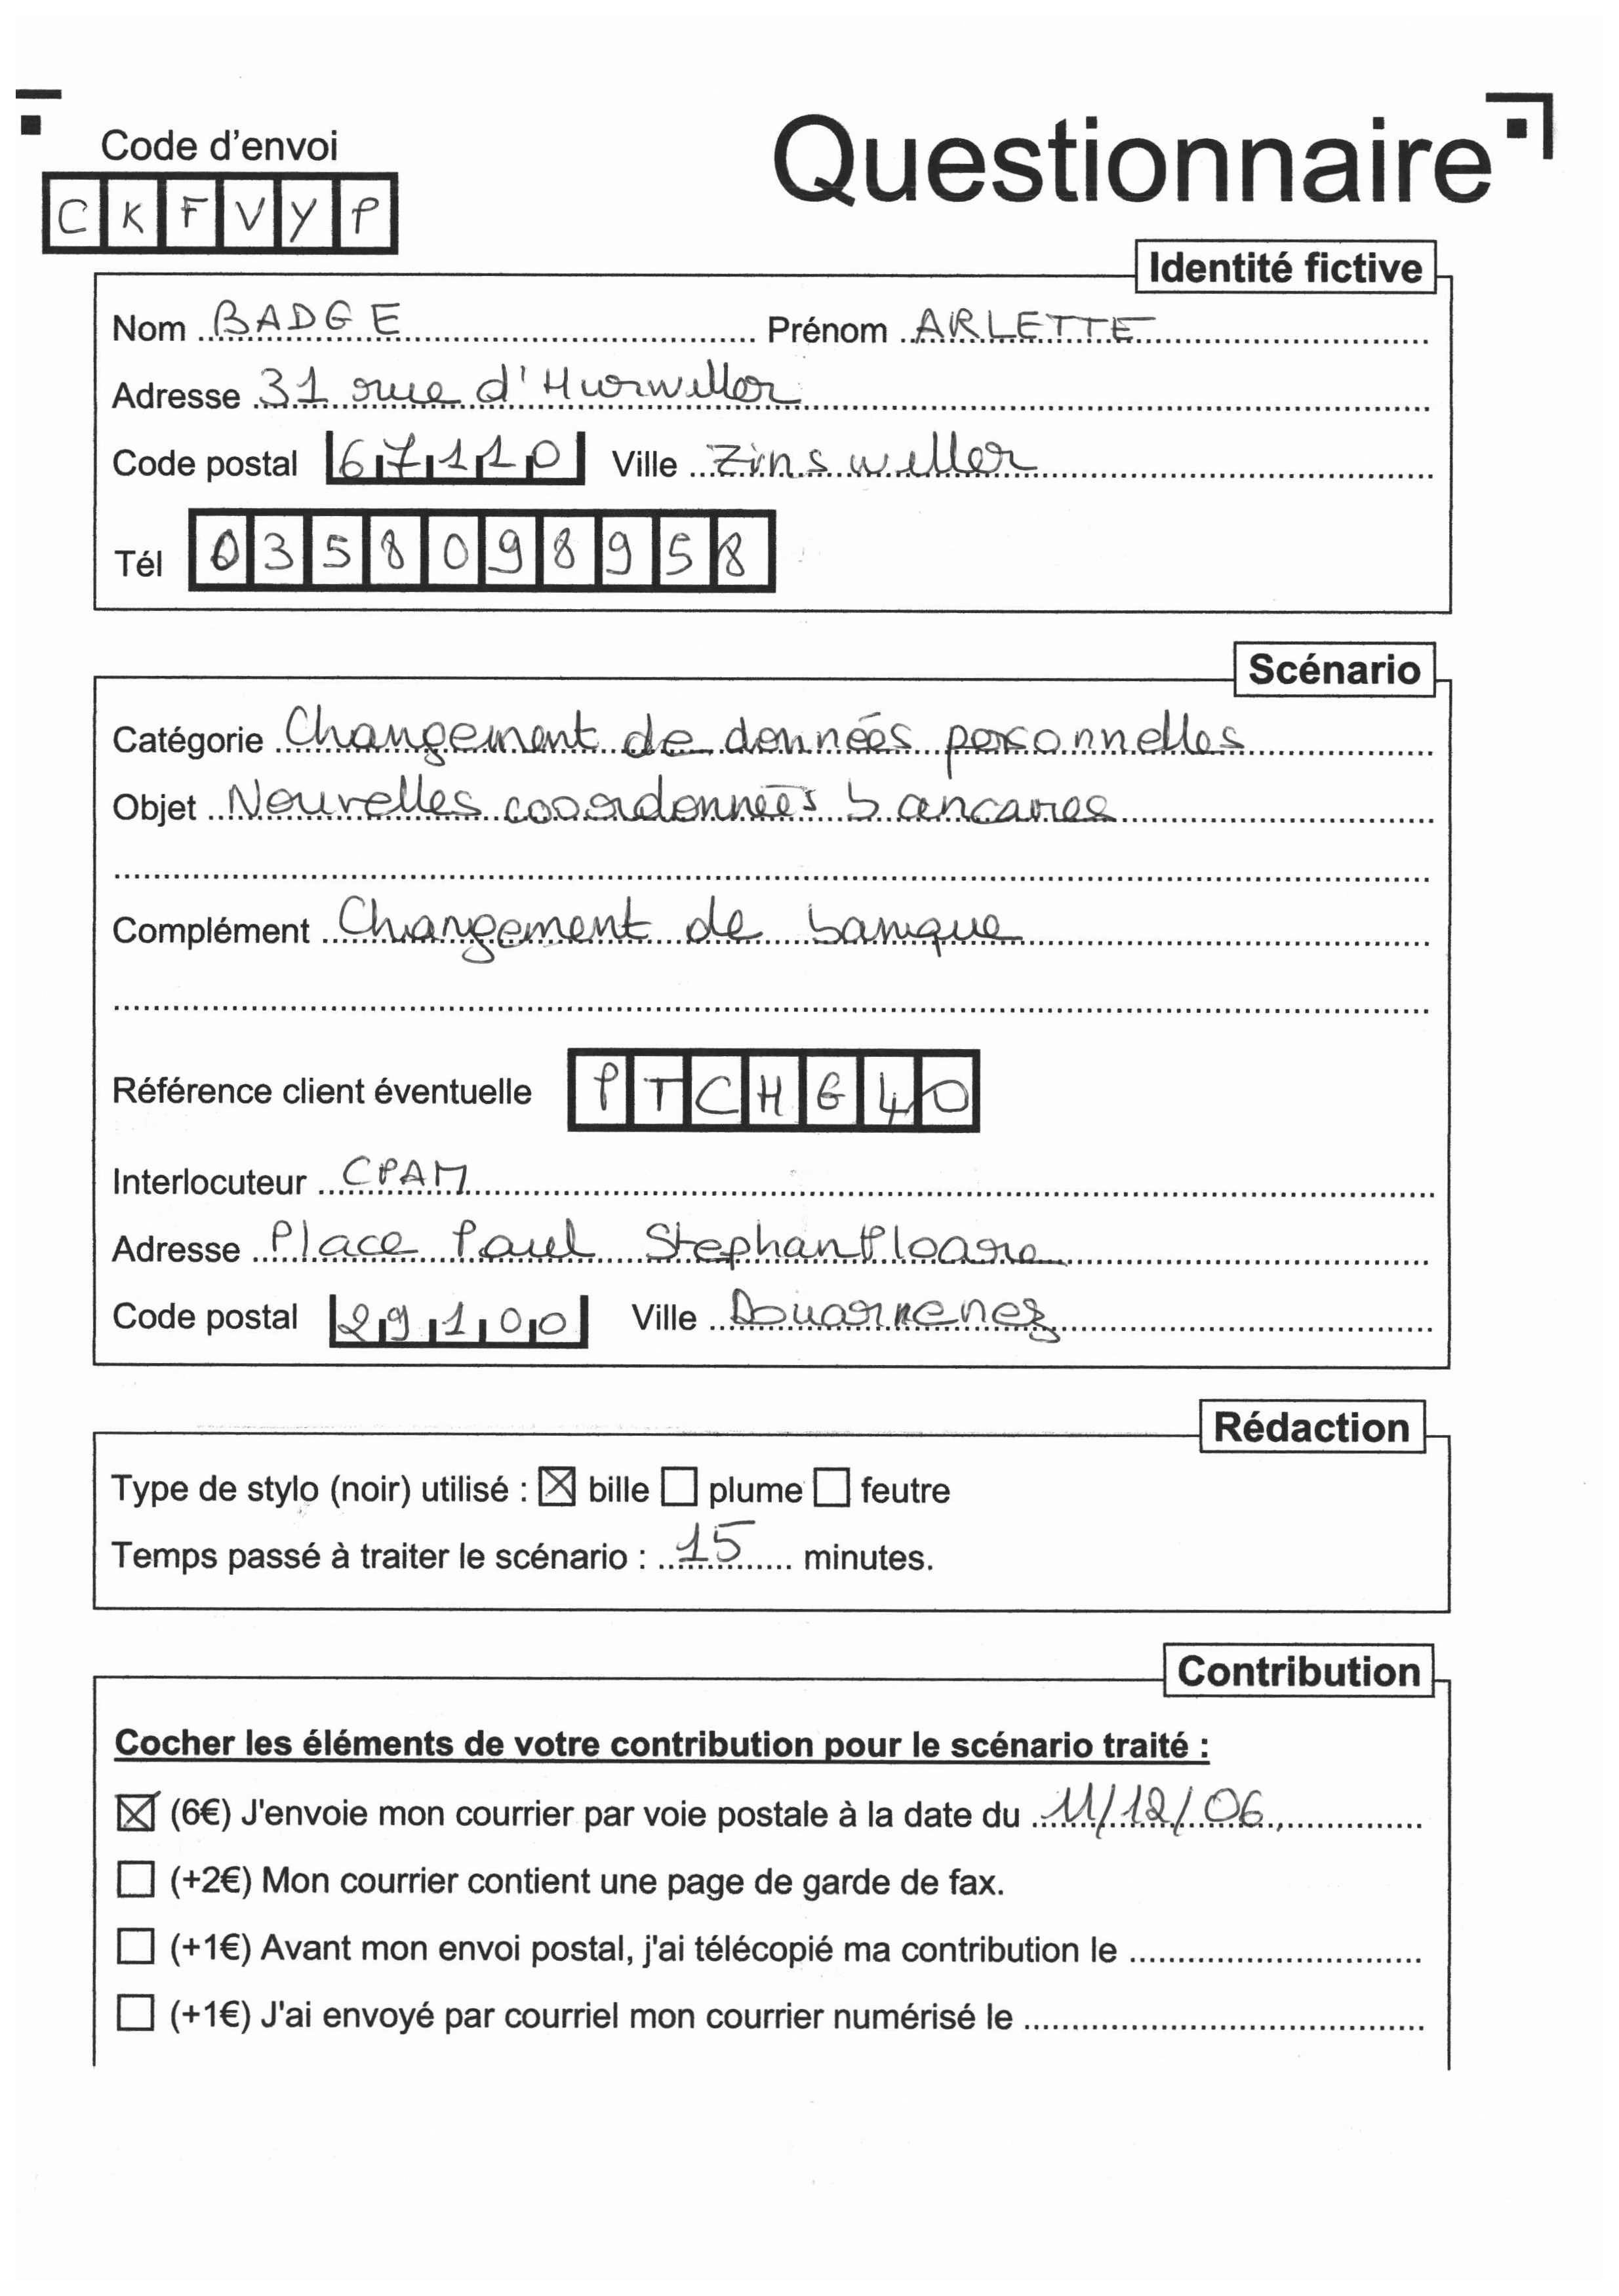 Code d'envoi
Questionnaire
CKFVYP
Identité fictive
Nom BADGE Prénom ARLETTE
Adresse 31 rue d'Hurwiller
Code postal 67110 Ville Zinswiller
Tél 0358098958
Scénario
Catégorie Changement de données personnelles
Objet Nouvelles coordonnées bancaires
Complément Changement de banque
Référence client éventuelle PTCHG40
Interlocuteur CPAM
Adresse Place Paul Stephan Ploare
Code postal 29100 Ville Douarnenez
Rédaction
Type de stylo (noir) utilisé : ☒ bille ☐ plume ☐ feutre
Temps passé à traiter le scénario : 15 minutes.
Contribution
Cocher les éléments de votre contribution pour le scénario traité :
☒ (6€) J'envoie mon courrier par voie postale à la date du 11/12/06
☐ (+2€) Mon courrier contient une page de garde de fax.
☐ (+1€) Avant mon envoi postal, j'ai télécopié ma contribution le
☐ (+1€) J'ai envoyé par courriel mon courrier numérisé le